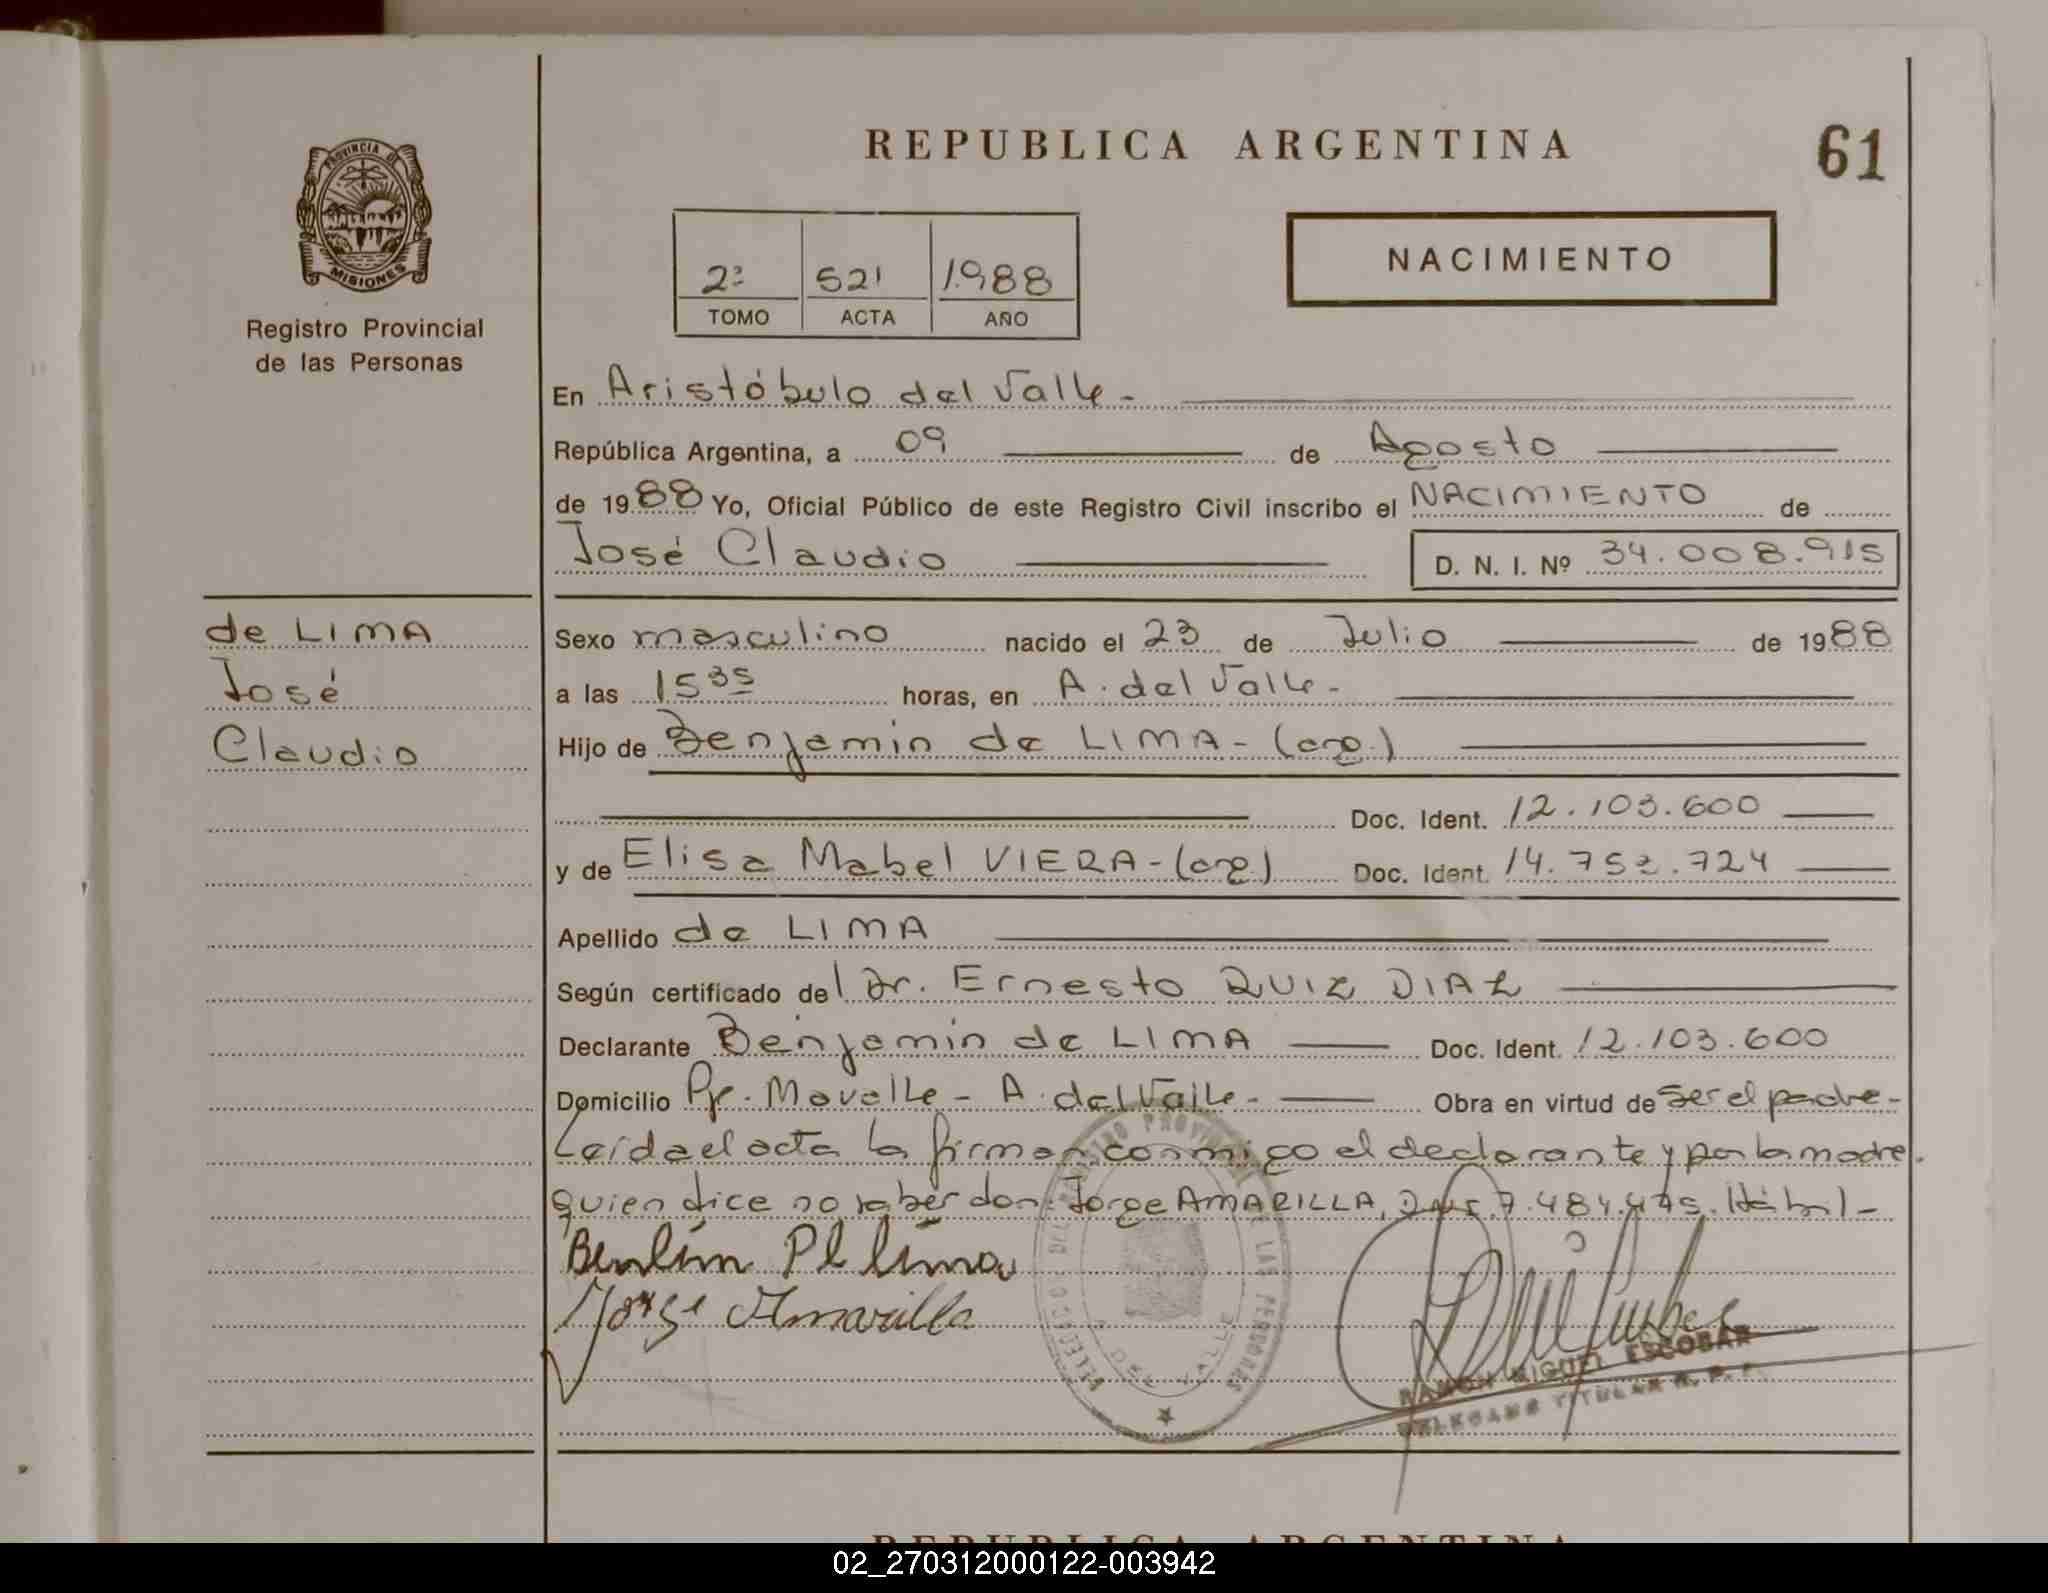 REPUBLICA ARGENTINA
61
PROVINCIA DE
MISIONES
Registro Provincial
de las Personas
NACIMIENTO
2º 521 1988
TOMO ACTA AÑO
En Aristóbulo del Valle -
República Argentina, a 09 de Agosto
de 1988 Yo, Oficial Público de este Registro Civil inscribo el NACIMIENTO de
José Claudio D. N. I. Nº 34.008.915
de LIMA
José
Claudio
Sexo masculino nacido el 23 de Julio de 1988
a las 15 35 horas, en A. del Valle -
Hijo de Benjamin de LIMA - (arg.)
Doc. Ident. 12.103.600
y de Elisa Mabel VIERA - (arg) Doc. Ident. 14.752.724
Apellido de LIMA
Según certificado del Dr. Ernesto RUIZ DIAZ
Declarante Benjamin de LIMA Doc. Ident. 12.103.600
Domicilio Pje. Mavalle - A. del Valle - Obra en virtud de ser el padre -
Leída el acta la firman conmigo el declarante y por la madre
quien dice no saber don: Jorge AMARILLA, 7.484.475. Hábil -
lima
Jorge Amarilla
REGISTRO PROVINCIAL DE LAS PERSONAS
A. DEL VALLE
RAMON MIGUEL ESCOBAR
DELEGADO TITULAR R. P. P.
REPUBLICA ARGENTINA
02_270312000122-003942